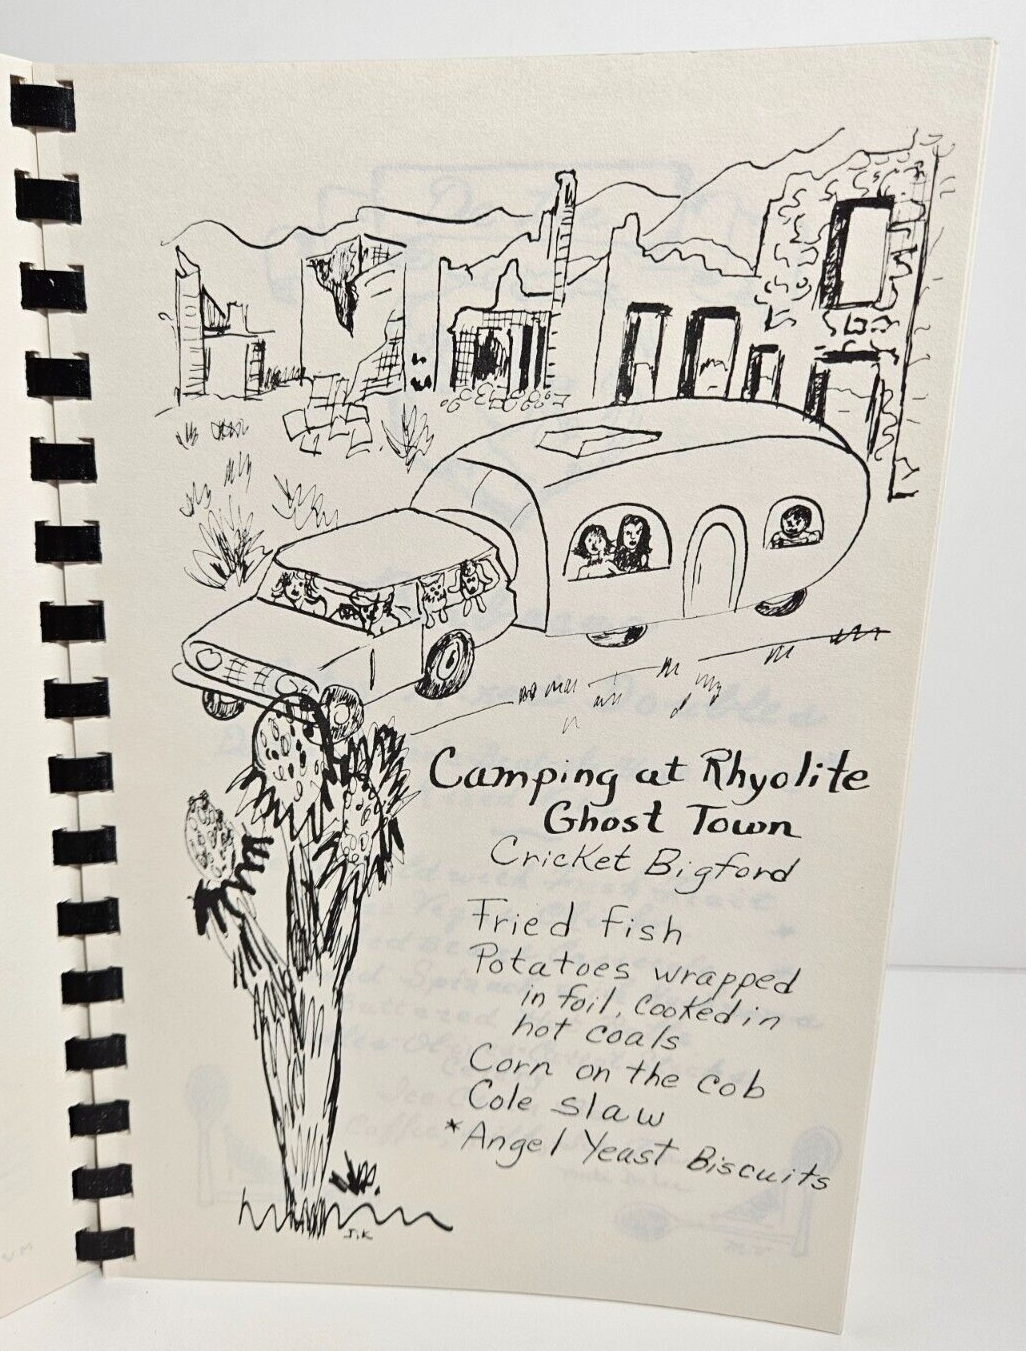 Camping at Rhyolite
Ghost Town
Cricket Bigford
Fried Fish
Potatoes wrapped
in foil, cooked in
hot coals
Corn on the cob
Cole slaw
*Angel Yeast Biscuits
J.K